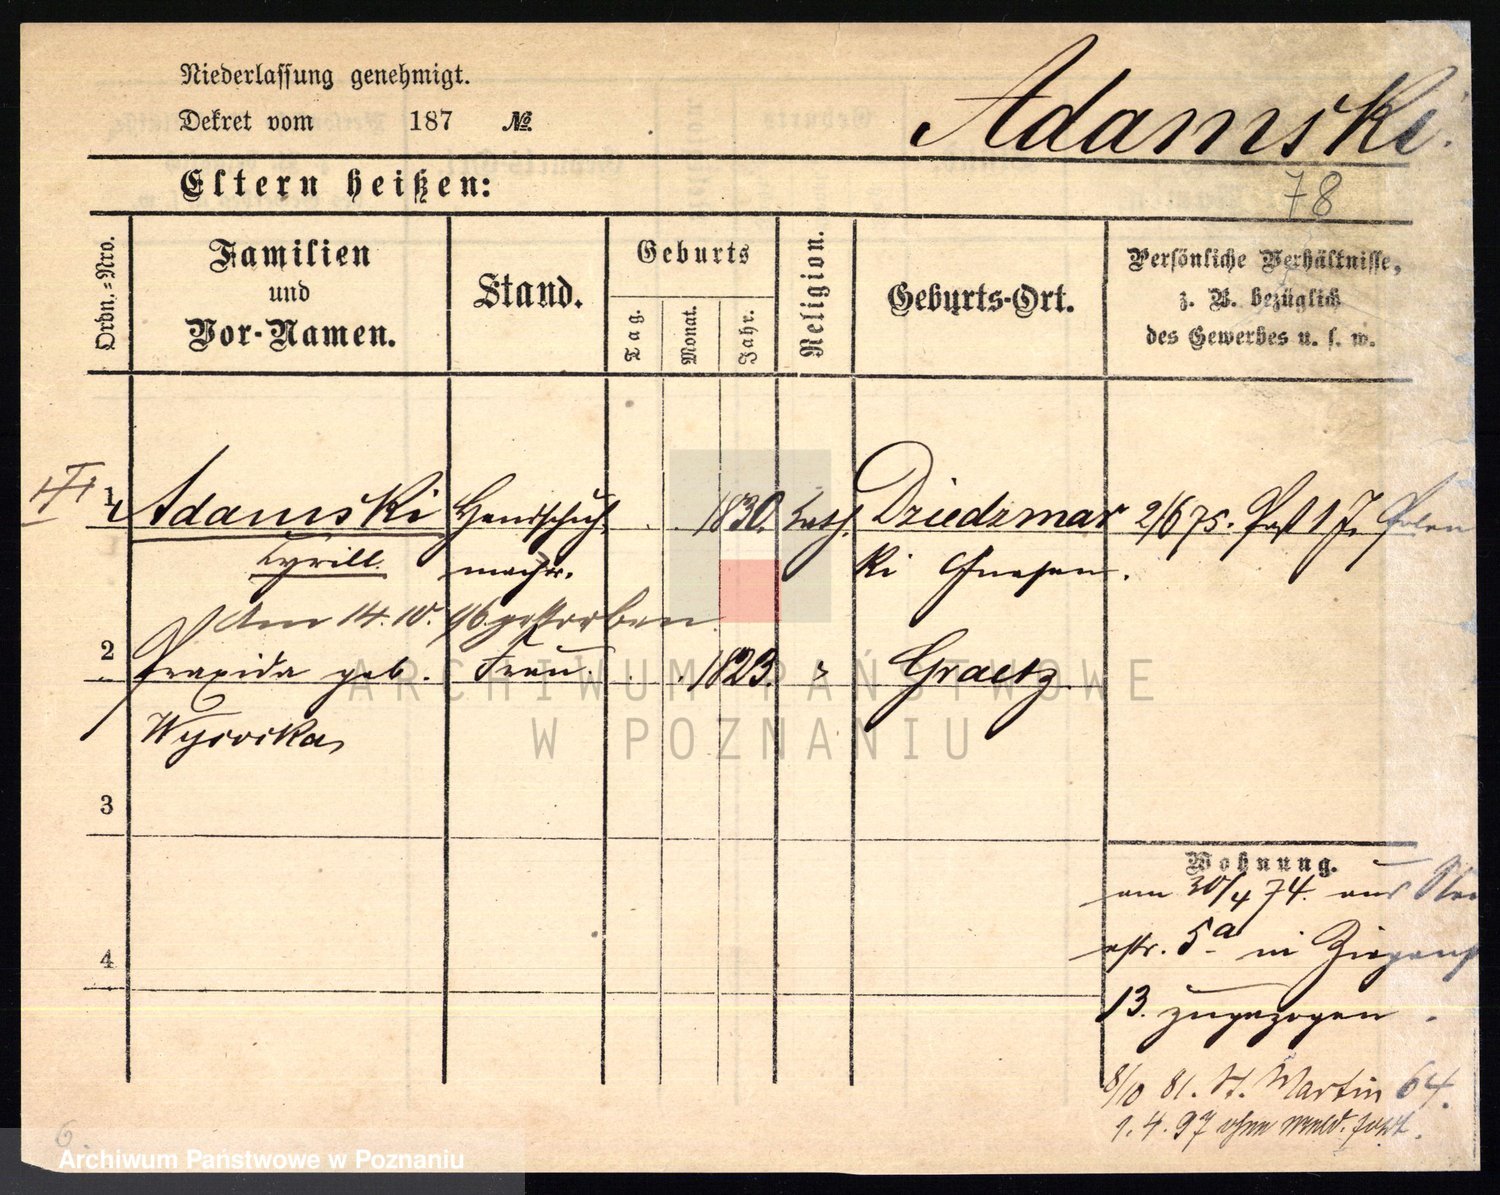 Niederlassung genehmigt.
Adamski.
Dekret vom 187 №
Eltern heißen:
78
Ordn.=Nro.
Familien und Vor-Namen.
Stand.
Geburts
Tag.
Monat.
Jahr.
Religion.
Geburts-Ort.
Persönliche Verhältnisse,
z. B. bezüglich
des Gewerbes u. s. w.
1 Adamski Handschuh- 1830. kath. Dziedzmar 2/6 75. Paß 1 J. Polen
Cyrill. macher. ki Gnesen.
Am 14. 10. 96 gestorben
2 Praxida geb. Frau. 1823. " Graetz.
Wysocka
3
Wohnung.
am 30/4 74. aus
str. 5a in
4
13. zugezogen
8/10 81. St. Martin 64.
1. 4. 97 ohne Meld. fort.
6.
ARCHIWUM PAŃSTWOWE
W POZNANIU
Archiwum Państwowe w Poznaniu